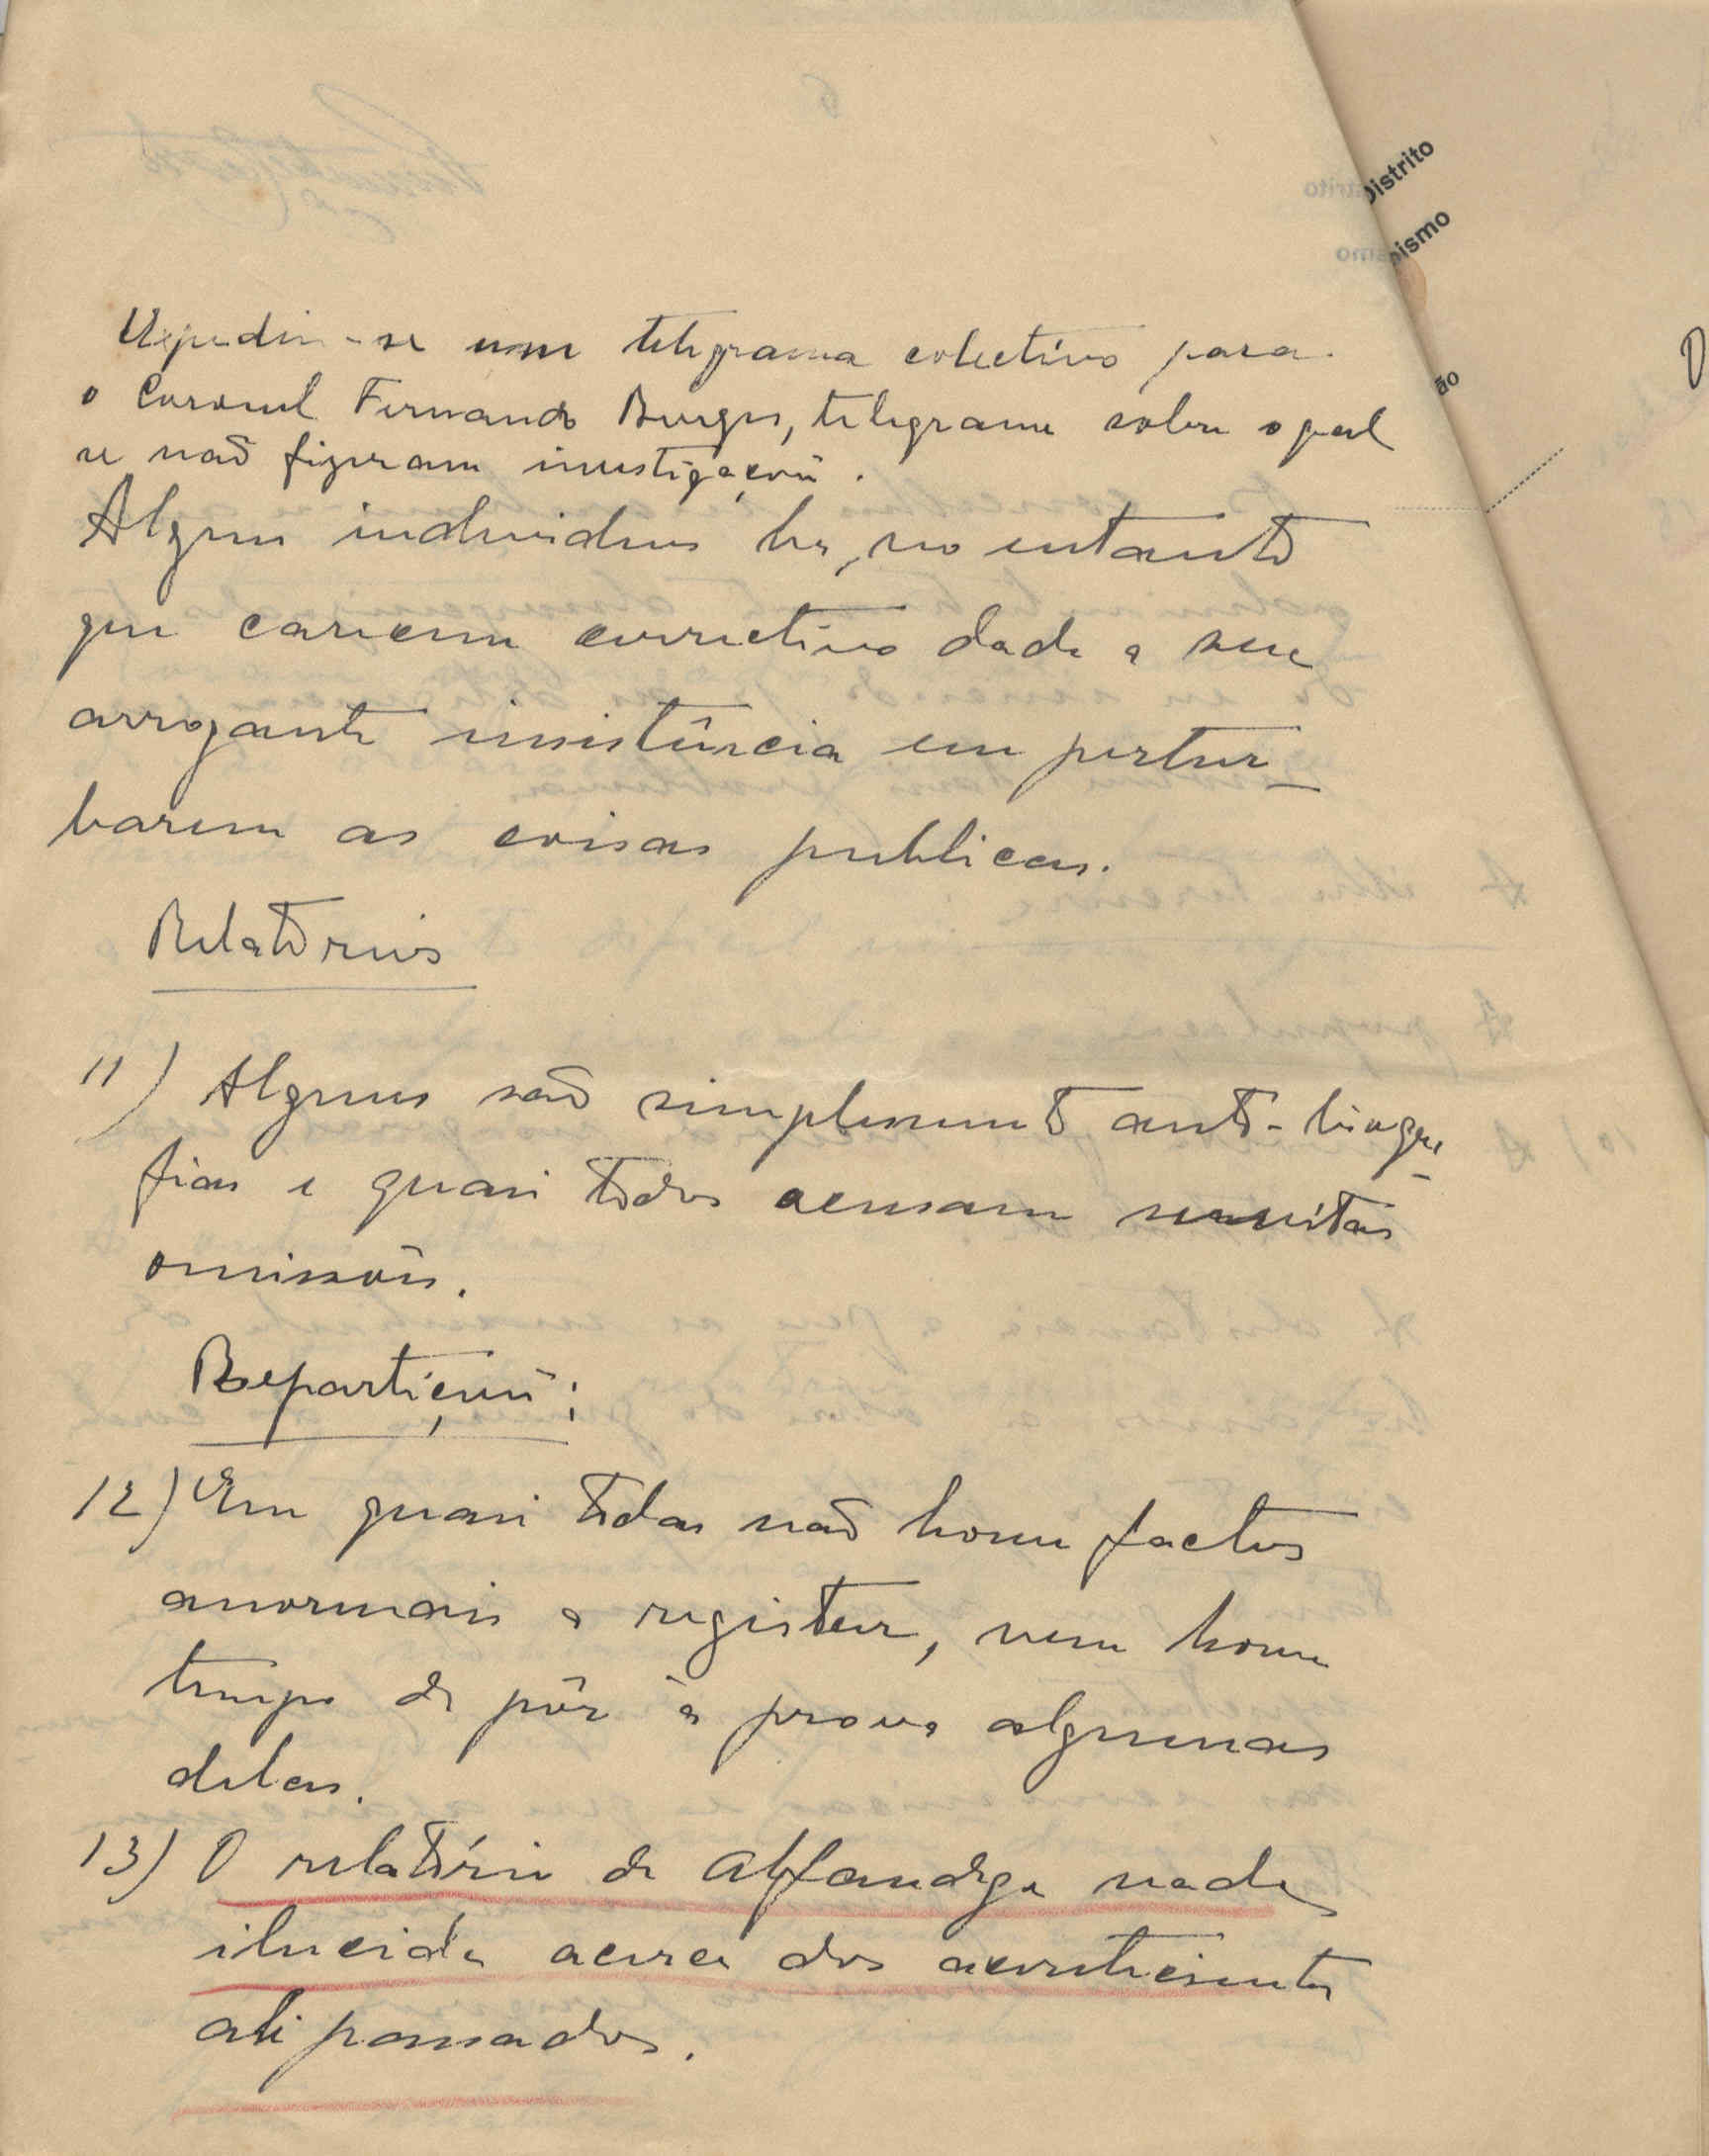 Expediu-se um telegrama colectivo para
o Coronel Fernando Borges, telegrama sobre o qual
se não fizeram investigações.
Alguns individuos ha, no entanto
que carecem correctivo dada a sua
arrogante insistência em pertur-
barem as coisas publicas.
Relatórios
11) Alguns são simplesmente auto-biogra-
fias e quasi todos acusam muitas
omissões.
Repartições:
12) Em quasi todas não houve factos
anormais a registar, nem houve
tempo de pôr à prova algumas
delas.
13) O relatório da Alfandega nada
elucida acerca dos acontecimentos
ali passados.
Distrito
nismo
ão